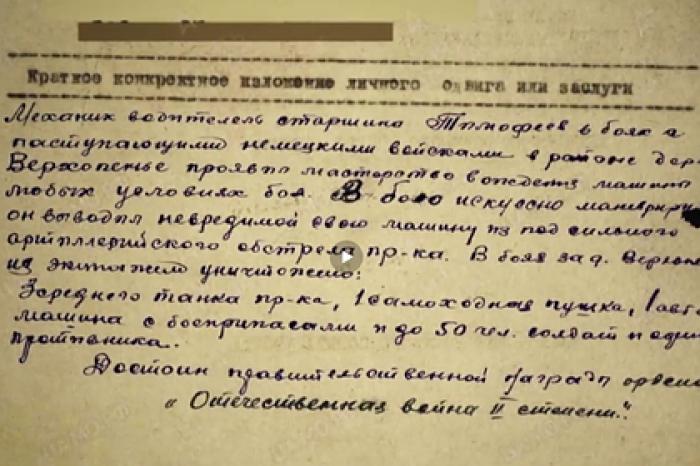 Краткое конкретное изложение личного одвига или заслуги
Механик водитель старшина Тимофеев в боях с
наступающими немецкими войсками в районе дер
Верхопенье проявил мастерство вождения машины
любых условиях боя. В бою искусно маневрируя
он выводил невредимой свою машину из под сильного
артиллерийского обстрела пр-ка. В боях за д. Верхоп
их экипажем уничтожено:
3 средних танка пр-ка, 1 самоходная пушка, 1 авто
машина с боеприпасами и до 50 чел. солдат и
противника.
Достоин правительственной награды орден
„Отечественная война II степени."